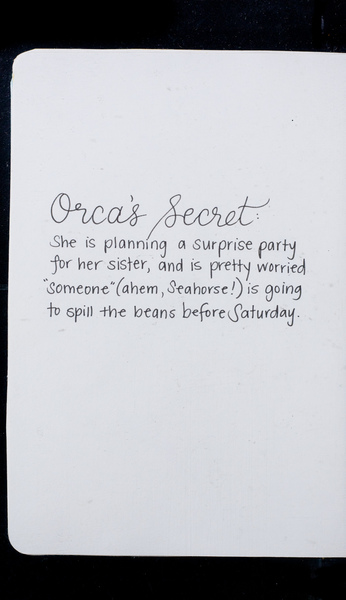 Orca's Secret:
She is planning a surprise party
for her sister, and is pretty worried
"someone" (ahem, Seahorse!) is going
to spill the beans before Saturday.